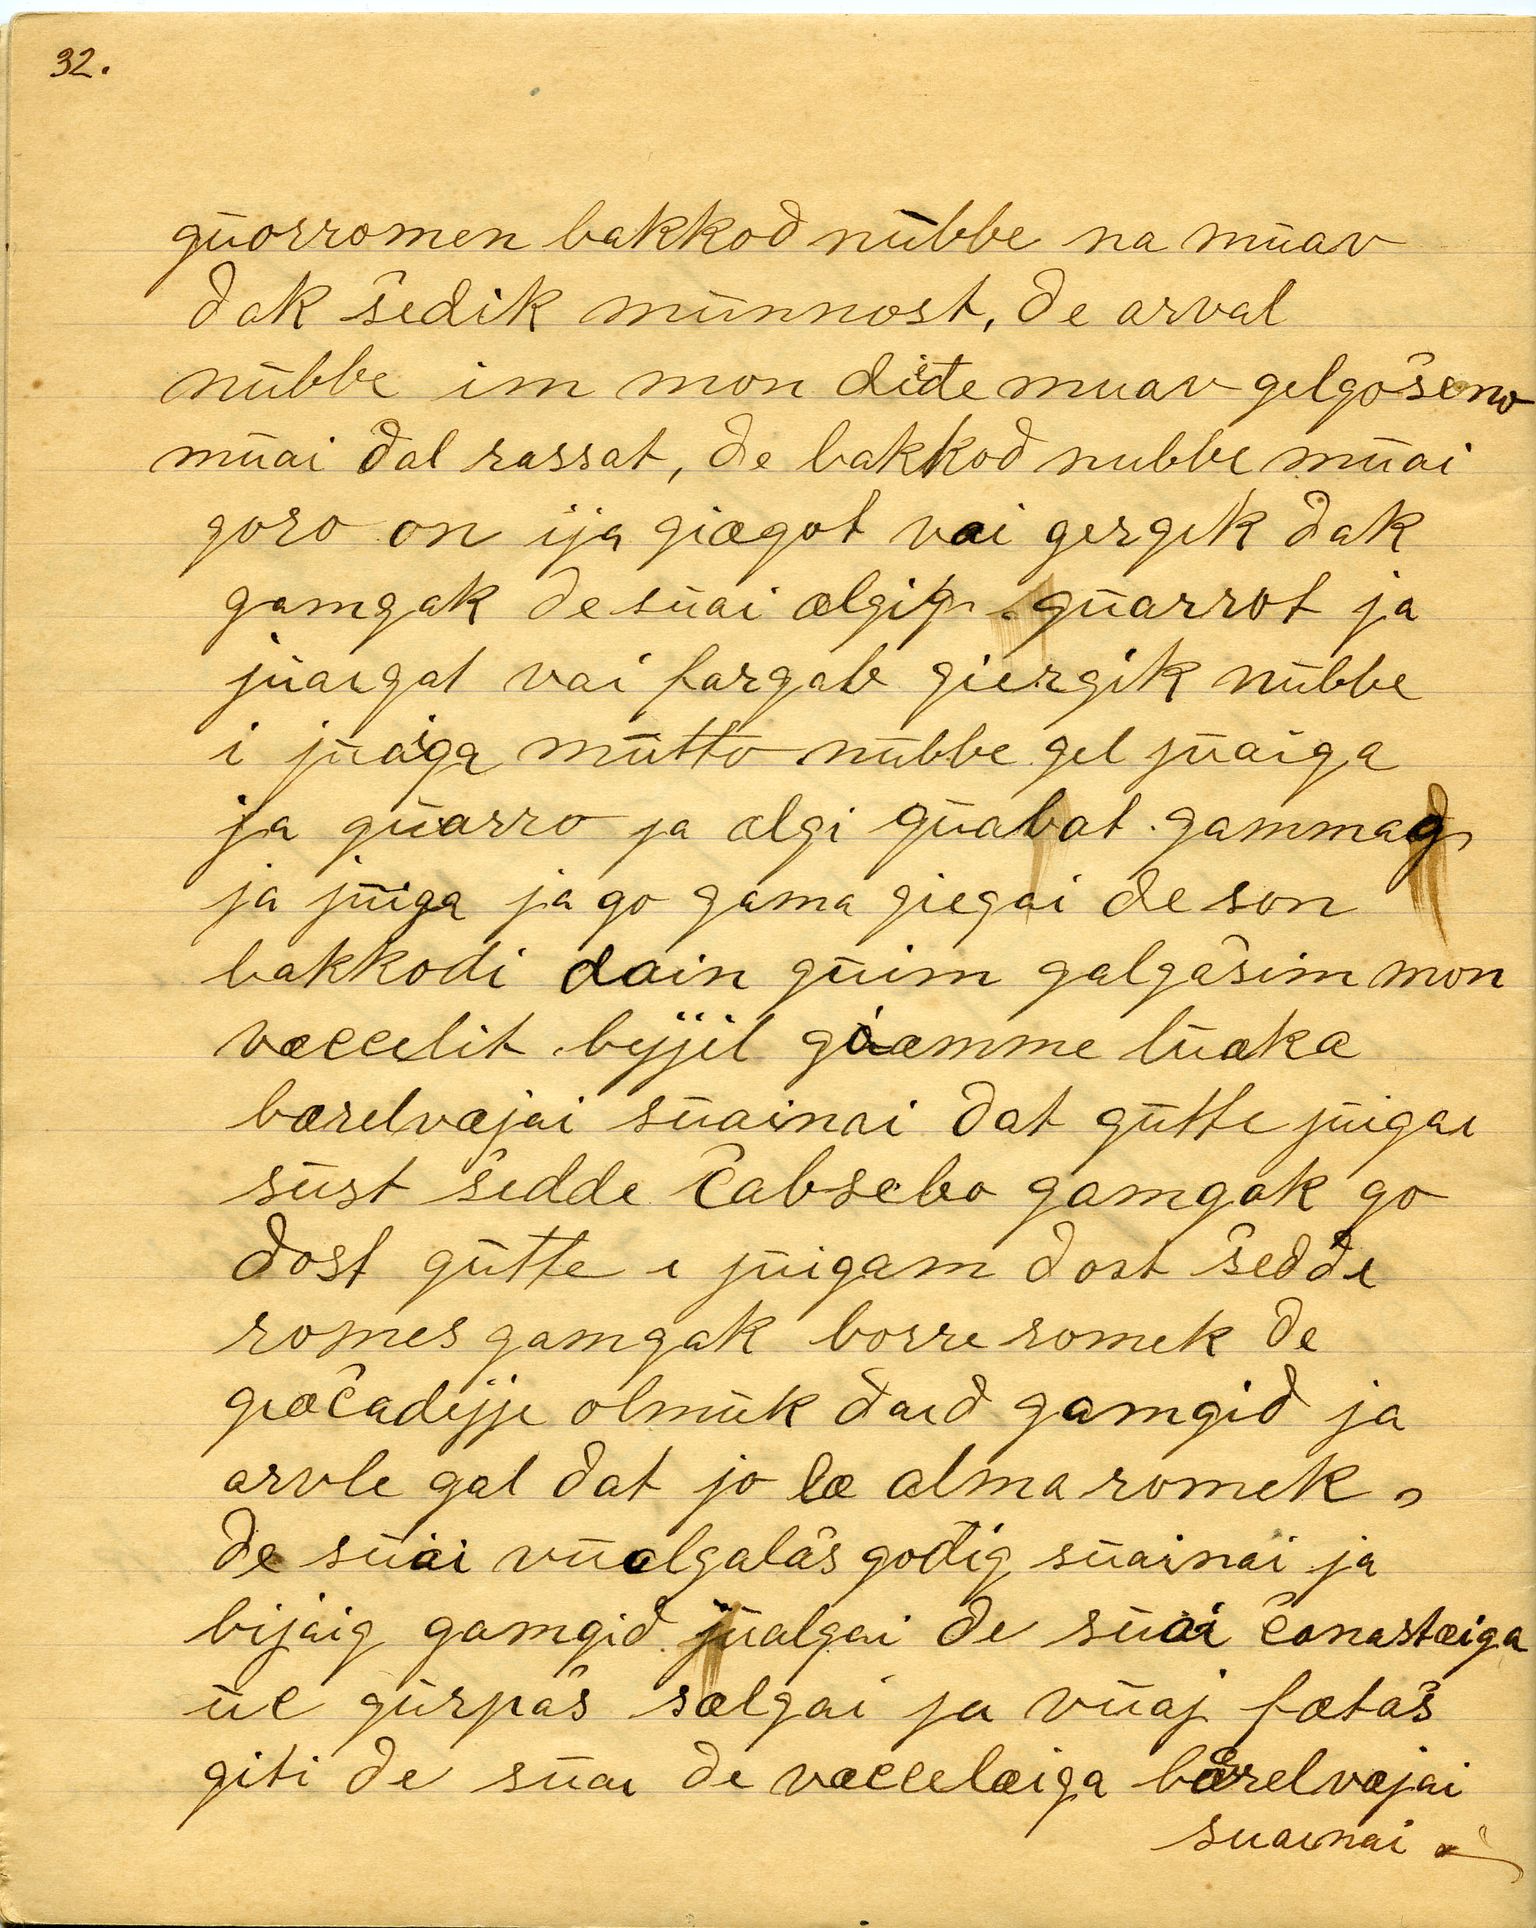 32.
gūorromen bakkod nūbbe na mūav
dak šedik mūnnost, de arval
nūbbe im mon diđe muav gelgošeno
mūai dal rassat, de bakkod nubbe mūai
goro on ija giægot vai gergik dak
gamgak de sūai ælgig gūarrot ja
jūaigat vai fargab giergik nūbbe
i jūaiga mūtto nūbbe gel jūaiga
ja gūarro ja ælgi gūabat gammag
ja jūiga ja go gama giegai de son
bakkodi dain gūim galgašim mon
væccelit bijjil giæmme lūaka
bærelvæjai sūainai dat gūtte jūigai
sūst šedde čabsebo gamgak go
dost gūtte i jūigam dost šedde
romes gamgak borre romek de
giæčadijje olmūk daid gamgid ja
arvle gal dat jo læ alma romek,
de sūai vūolgalaš godig sūainai ja
bijaig gamgid jūalgai de sūai čanastæiga
ūc gūrpaš sælgai ja vūaj fætaš
giti de sūai de væccelæiga bærelvæjai
suainai